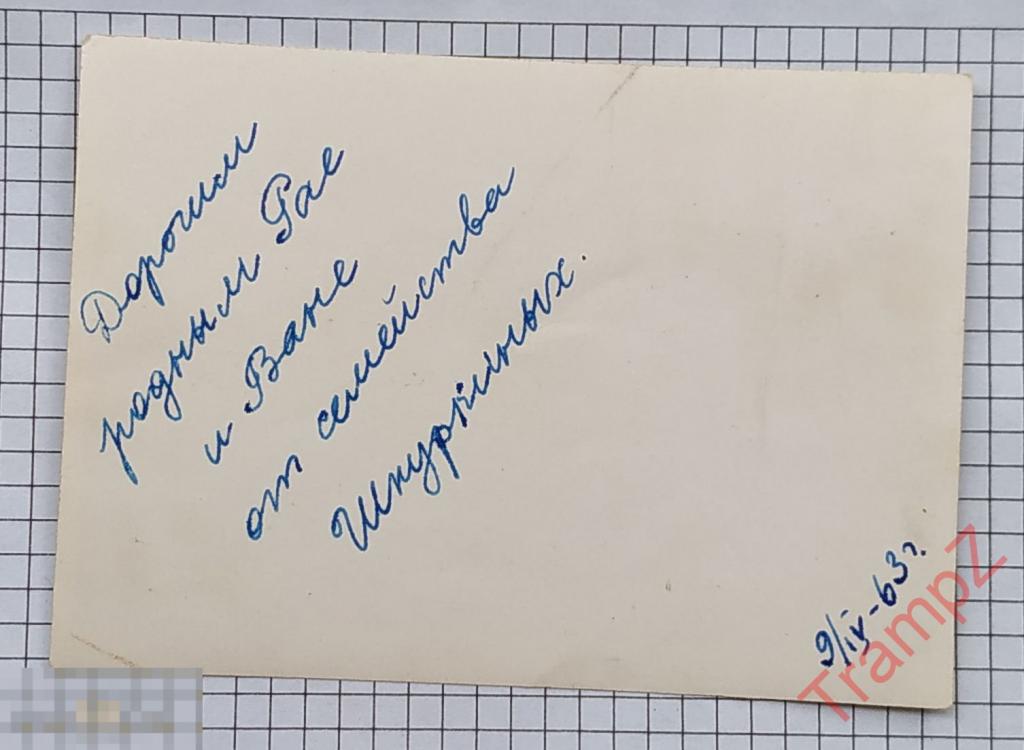 Дорогим
родным Рае
и Ване
от семейства
Шкуриных.
9/IV-63 г.
TrampZ